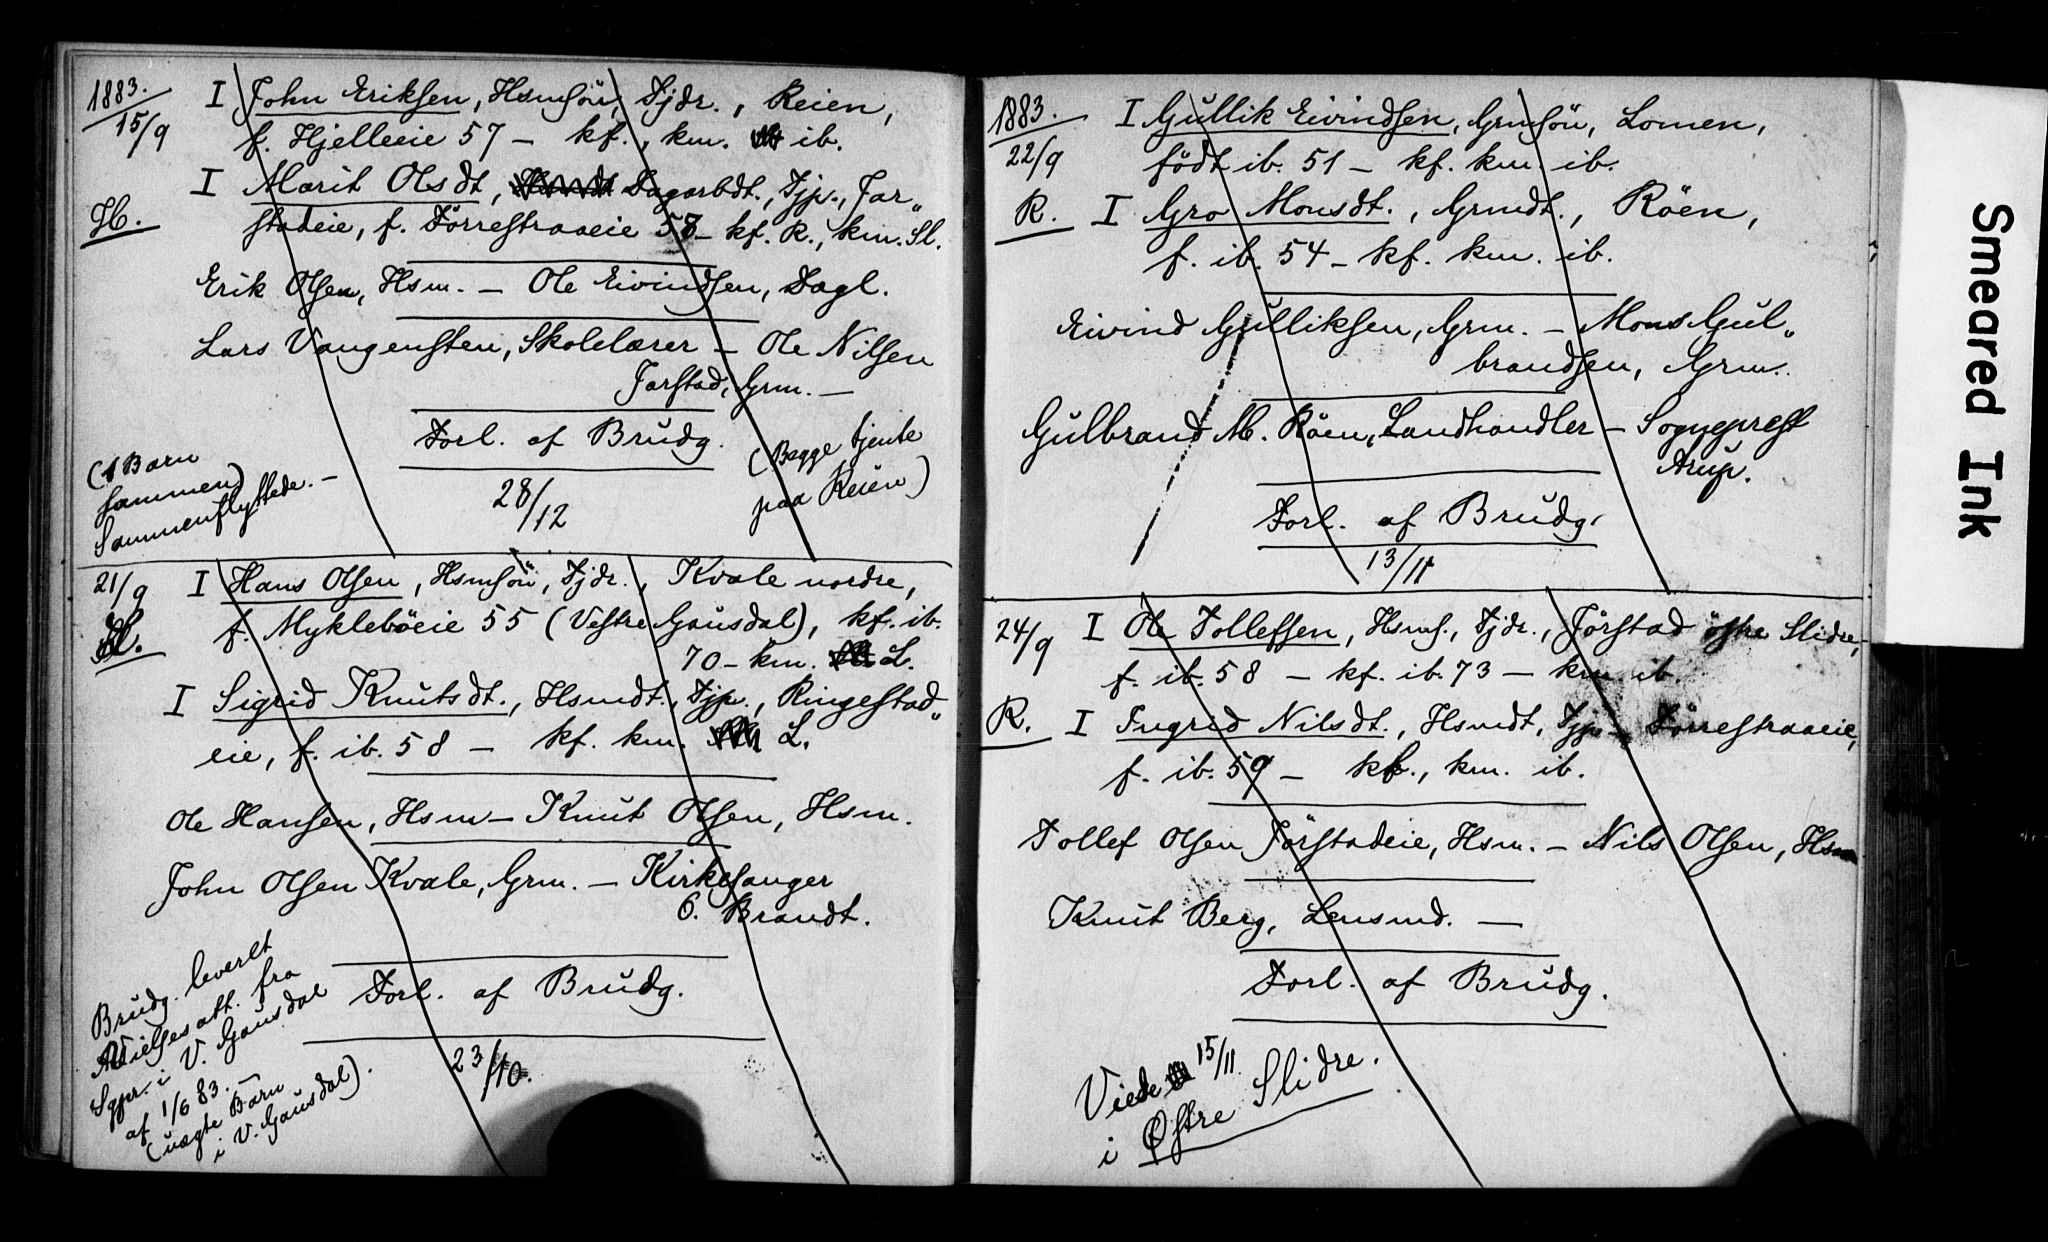 1883.
15/9
I John Eriksen, Hsmsön, Tjdr., Reien,
f. Hjelleeie 57 – kf., km. ib.
I Marit Olsdt, Dagarbdt., Tjp., Jar„
H.
stadeie, f. Törrestraaeie 58 – kf. R., km. Sl.
Erik Olsen, Hsm. – Ole Eivindsen, Dagl.
Lars Vangensten, Skolelærer – Ole Nilsen
Jarstad, Grm. –
Forl. af Brudg.
(Begge tjente
paa Reien)
(1 Barn
sammen)
Sammenflyttede. –
28/12
21/9
I Hans Olsen, Hsmsön, Tjdr., Kvale nordre,
f. Mykleböeie 55 (Vestre Gausdal), kf. ib.
70 – km. L.
I Sigrid Knutsdt., Hsmdt., Tjp., Ringestad„
eie, f. ib. 58 – kf. km. L.
Ole Hansen, Hsm – Knut Olsen, Hsm.
John Olsen Kvale, Grm. – Kirkesanger
O. Brandt.
Forl. af Brudg.
23/10.
Brudg. leverlt
Vielsesatt. fra
Sgpr. i V. Gausdal
af 1/6 83. –
(uægte Barn
i V. Gausdal).
1883.
22/9
I Gullik Eivindsen, Grmsön, Lomen,
födt ib. 51 – kf. km. ib.
R.
I Gro Monsdt., Grmdt., Röen,
f. ib. 54 – kf. km. ib.
Eivind Gulliksen, Grm. – Mons Gul„
brandsen, Grm.
Gulbrand M. Röen, Landhandler – Sogneprest
Arup.
Forl. af Brudg.
13/11
24/9
I Ole Tollefsen, Hsms., Tjdr., Jörstad östre Slidre,
f. ib. 58 – kf. ib. 73 – km ib
R.
I Ingrid Nilsdt., Hsmdt, Tjp – Törrestraaeie,
f. ib. 59 – kf., km. ib.
Tollef Olsen Jörstadeie, Hsm. – Nils Olsen, Hsm
Knut Berg, Lensmd. –
Forl. af Brudg.
Viede 15/11
i Østre Slidre.
Smeared Ink